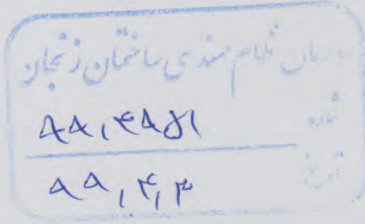 سازمان نظام مهندسی ساختمان زنجان
شماره
۹۹,۴۹۵۱
تاریخ
۹۹,۴,۳